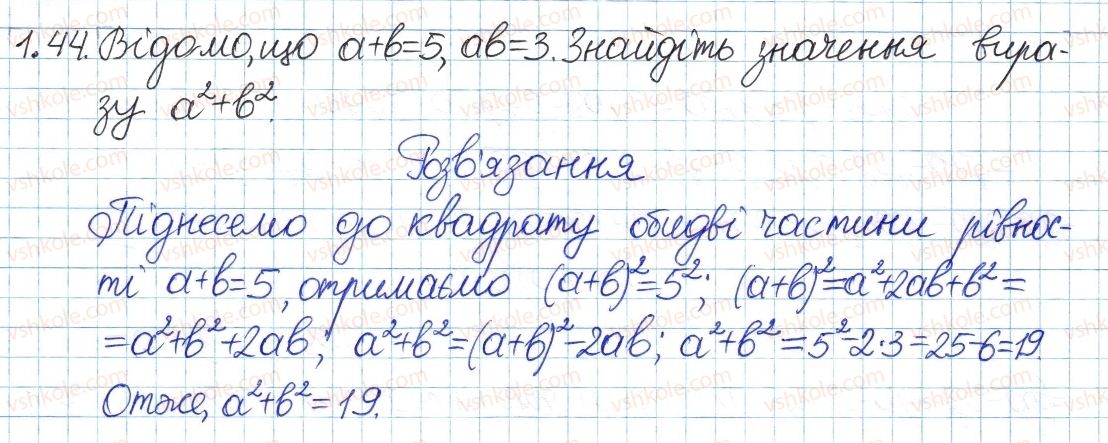 1.44. Відомо, що a+b=5, ab=3. Знайдіть значення вира-
зу a²+b².
Розв'язання
Піднесемо до квадрату обидві частини рівнос-
ті a+b=5, отримаємо (a+b)²=5²; (a+b)²=a²+2ab+b²=
=a²+b²+2ab; a²+b²=(a+b)²-2ab; a²+b²=5²-2·3=25-6=19.
Отже, a²+b²=19.